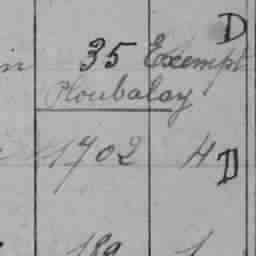 D
in 35 Exempt
Ploubalay
1702 4 D
189 1